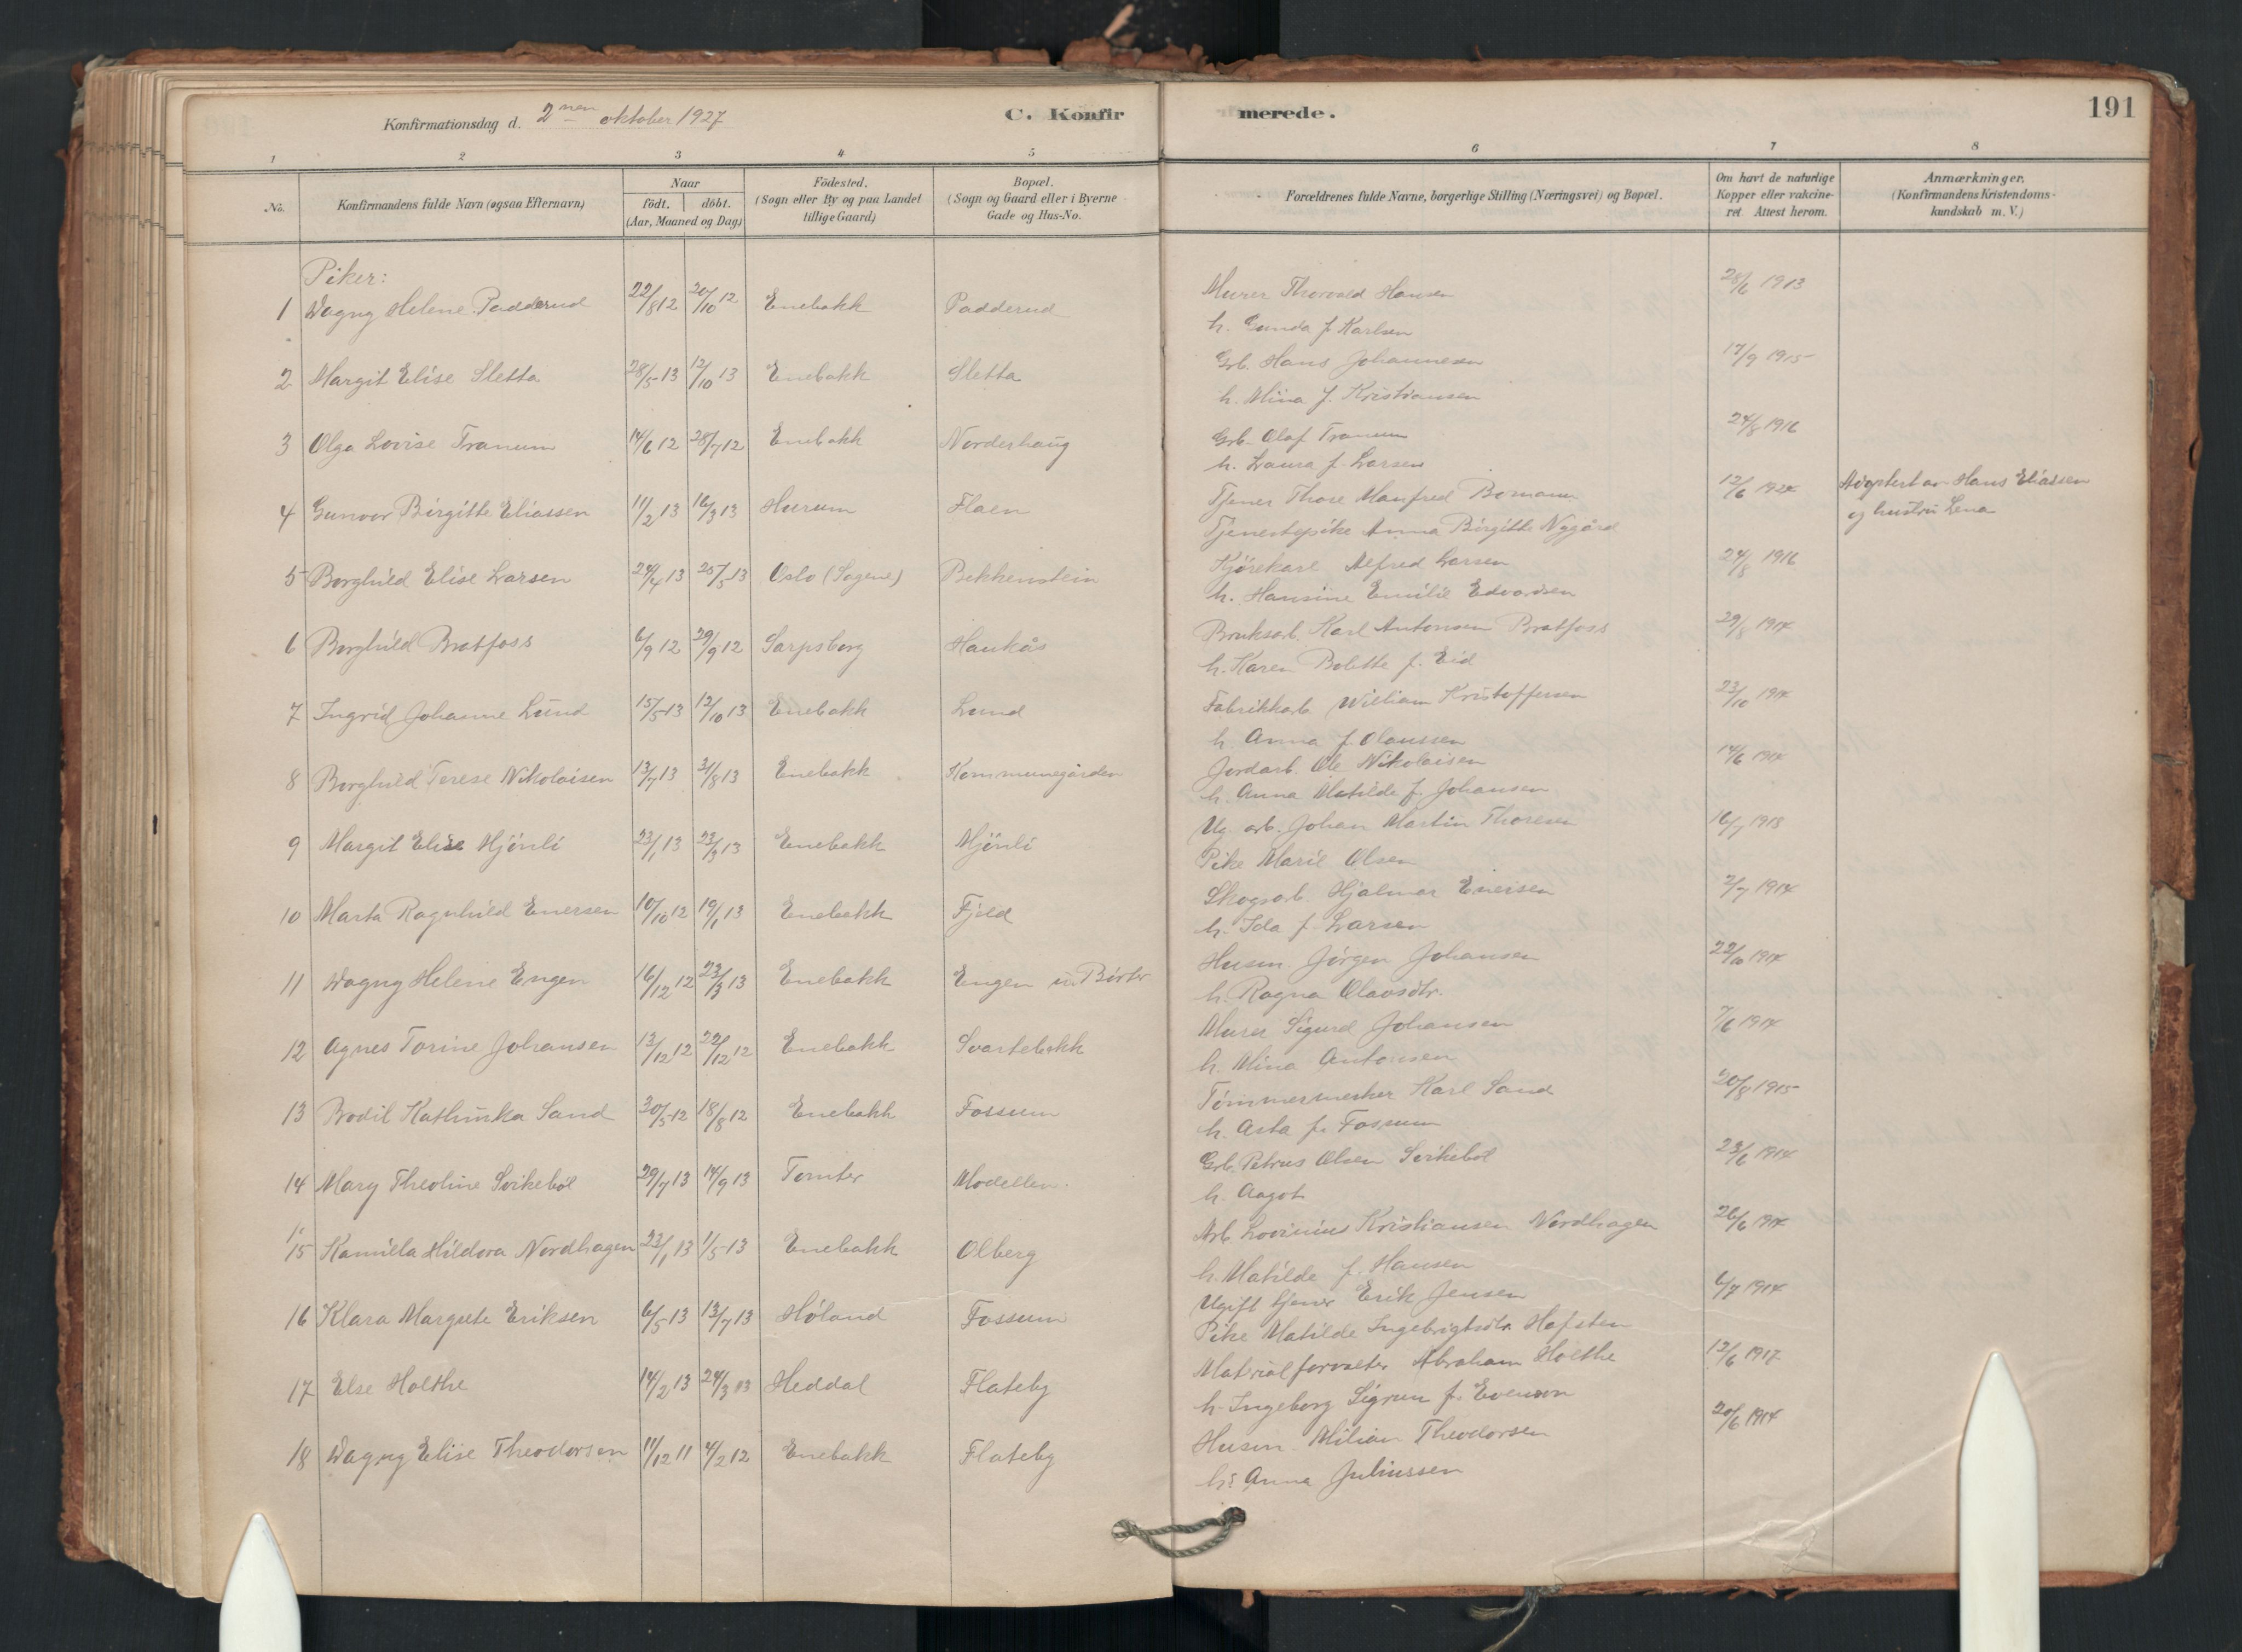 Konfirmationsdag d. 2nen oktober 1927
C. Konfirmerede.
191
1 2 3 4 5 6 7 8
No.
Konfirmandens fulde Navn (ogsaa Efternavn)
Naar
födt. döbt.
(Aar, Maaned og Dag)
Födested.
(Sogn eller By og paa Landet
tillige Gaard)
Bopæl.
(Sogn og Gaard eller i Byerne
Gade og Hus-No.
Forældrenes fulde Navne, borgerlige Stilling (Næringsvei) og Bopæl.
Om havt de naturlige
Kopper eller vakcine-
ret Attest herom.
Anmærkninger.
(Konfirmandens Kristendoms-
kundskab m. V.)
Piker:
1 Dagny Helene Padderud 22/8 12 20/10 12 Enebakk Padderud Murer Thorvald Hansen 28/6 1913
h. Gunda f Karlsen
2 Margit Elise Sletta 28/5 13 12/10 13 Enebakk Sletta Grb. Hans Johannesen 17/9 1915
h. Mina f. Kristiansen
3 Olga Lovise Tranum 14/6 12 28/7 12 Enebakk Norderhaug Grb. Olaf Tranum 24/8 1916
h. Laura f. Larsen
4 Gunvor Birgitte Eliassen 11/2 13 16/3 13 Hurum Flaen Tjener Thore Manfred Bomann 12/6 1924 Adoptert av Hans Eliassen
Tjenestepike Anna Birgitte Nygård og hustru Lena
5 Borghild Elise Larsen 24/4 13 25/5 13 Oslo (Sagene) Bekkenstein Kjørekarl Alfred Larsen 24/8 1916
h. Hansine Emilie Edvardsen
6 Borghild Bratfoss 6/9 12 29/9 12 Sarpsborg Haukås Bruksarb. Karl Antonsen Bratfoss 29/8 1914
h. Karen Bolette f. Eid
7 Ingrid Johanne Lund 15/5 13 12/10 13 Enebakk Lund Fabrikkarb. William Kristoffersen 23/10 1914
h. Anna f. Olaussen
8 Borghild Terese Nikolaisen 13/7 13 31/8 13 Enebakk Kommunegården Jordarb. Ole Nikolaisen 14/6 1914
h. Anna Matilde f. Johansen
9 Margit Elise Mjönli 23/1 13 23/3 13 Enebakk Mjönli Ug. arb. Johan Martin Thoresen 16/7 1918
Pike Marie Olsen
10 Marta Ragnhild Enersen 10/10 12 19/1 13 Enebakk Fjeld Skogsarb. Hjalmar Eneisen 2/7 1914
h. Ida f. Larsen
11 Dagny Helene Engen 16/12 12 23/3 13 Enebakk Engen u. Börter Husm. Jørgen Johansen 22/10 1914
h. Ragna Olavsdtr.
12 Agnes Torine Johansen 13/12 12 22/12 12 Enebakk Svartebekk Murer Sigurd Johansen 7/6 1914
h. Mina Antonsen
13 Bodil Kathinka Sand 30/5 12 18/8 12 Enebakk Fossum Tömmermerker Karl Sand 20/8 1915
h. Asta f. Fossum
14 Mary Theoline Svikeböl 29/7 13 14/9 13 Tomter Modellen. Grb. Petrus Olsen Svikeböl 23/6 1914
h. Aagot
15 Kamilla Hildora Nordhagen 23/1 13 1/5 13 Enebakk Olberg Arb. Lovinius Kristiansen Nordhagen 26/6 1914
h. Matilde f. Hansen
16 Klara Margrete Eriksen 6/5 13 13/7 13 Höland Fossum Ugift tjener Erik Jensen 6/7 1914
Pike Matilde Ingebrigtsdtr. Hofsten
17 Else Holthe 14/2 13 24/3 13 Heddal Flateby Materialforvalter Abraham Holthe 12/6 1917
h. Ingeborg Sigrun f. Evenson
18 Dagny Elise Theodorsen 11/12 11 4/2 12 Enebakk Flateby Husm. Milian Theodorsen 20/6 1914
h. Anna Juliussen